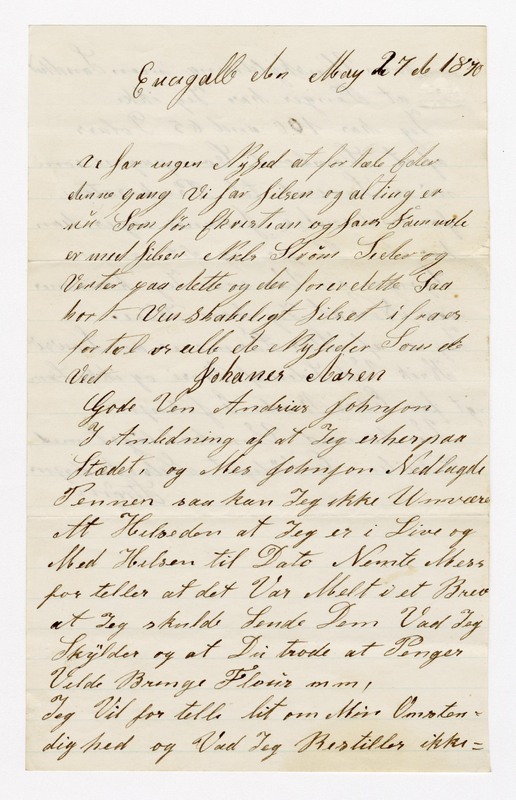 den May 27 de 1870
Ve har ingen Nyhed at for tæle Eder
denne gang Vi har helsen og alting er
nu Som før Christian og hans Familie
er med helsen Niels Strøm Seder og
Venter paa dette og der for er dette Saa
kort. Venskabeligt hilset i fra os
for tel os alle de Nyheder Som de
Ved Johanes Aasen
Gode Ven Andrias Johnson
I Anledning af at Jeg er her paa
Stædet, og Mes Johnson Nedlagde
Pennen saa kan Jeg ikke Unvære
At Helse den at Jeg er i Live og
Med Helsen til Dato Nemte Mess
for teller at det Var Melt i et Brev
at Jeg skulde Sende Dem Vad Jeg
Skÿlder og at Du trode at Penger
Vilde Bringe Flour mm,
Jeg Vil for telle lit om Min Omsten=
dighed og Vad Jeg Bestiller ikke=